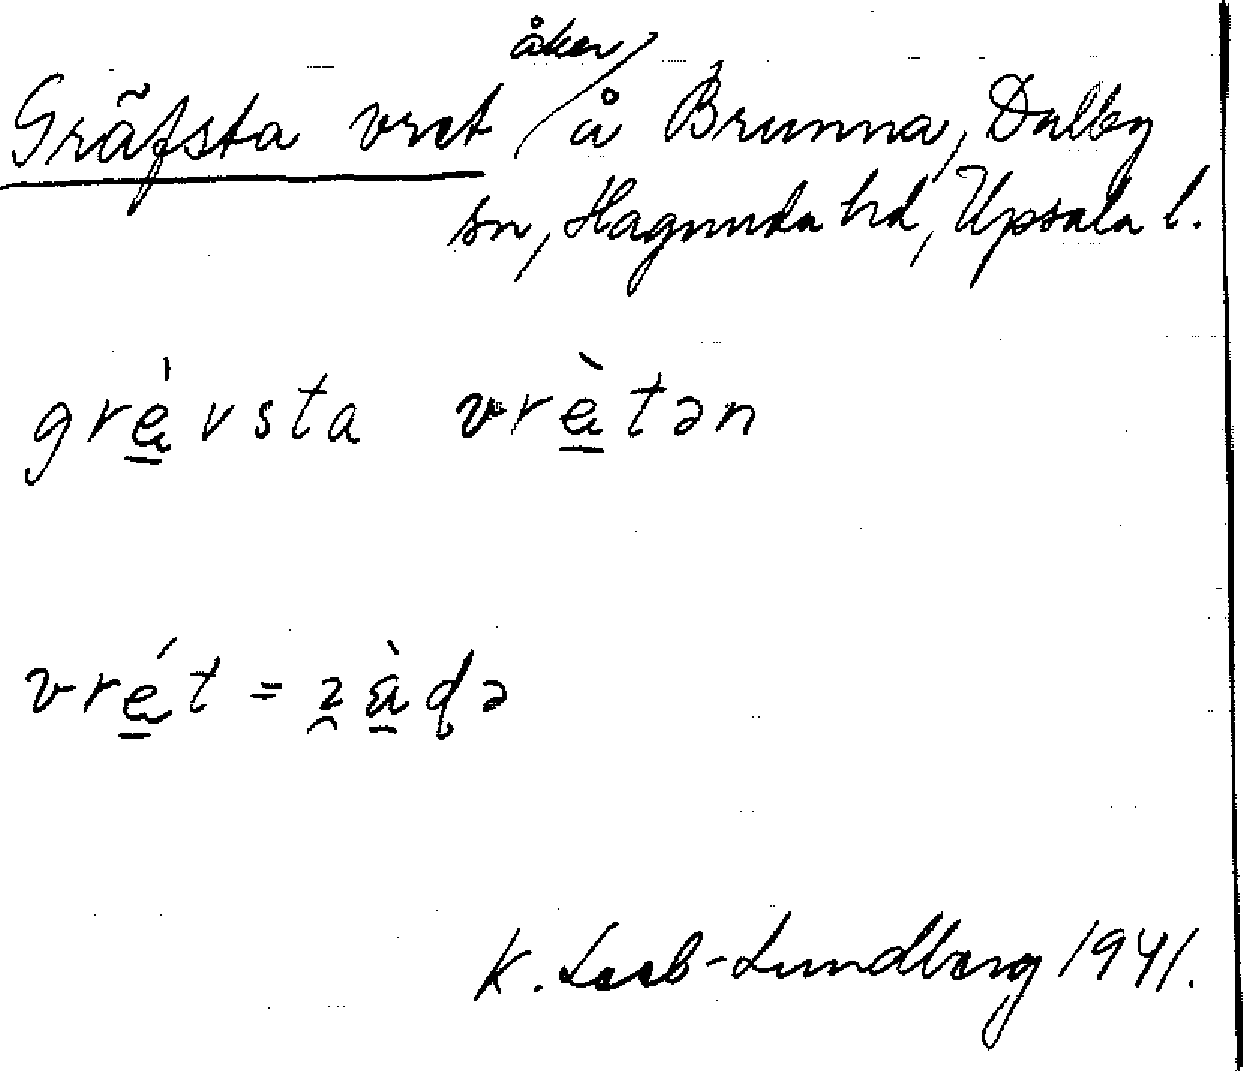 åker
Gräfsta vret / å Brunna, Dalby
sn, Hagunda hd, Upsala l.
gre̱̍vsta vrè̱tən
vré̱t =
K. Leeb-Lundberg 1941.